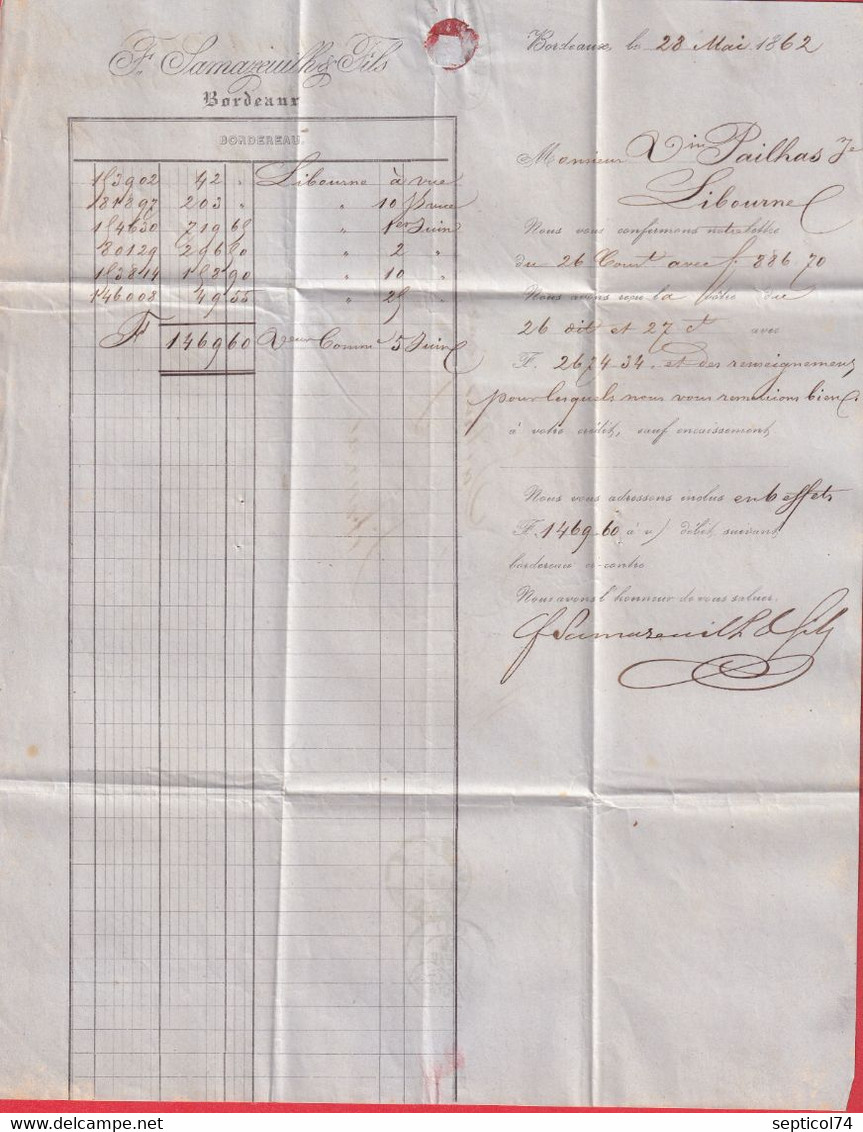 F. Samazeuilh & Fils
Bordeaux
BORDEREAU.
153902 42 " Libourne à vue
181897 203 " " 10 Jrs vue
154630 719 65 " 1er Juin
80129 296 50 " 2 "
153814 158 90 " 10 "
146008 49 55 " 25 "
F 1469 60 Comme 5 Juin
Bordeaux, le 28 Mai 1862
Monsieur Vin Pailhas Je
Libourne
Nous vous confirmons notre lettre
du 26 Court avec f. 886 70
Nous avons reçu la vôtre du
26 dit et 27 ct avec
F. 2674-34. et des renseignements
pour lesquels nous vous remercions bien
à votre crédit, sauf encaissement,
Nous vous adressons inclus en 6 effets
F. 1469-60 à v/ débit, suivant
bordereau ci-contre
Nous avons l'honneur de vous saluer.
F Samazeuilh & fils
delcampe.net
septicol74